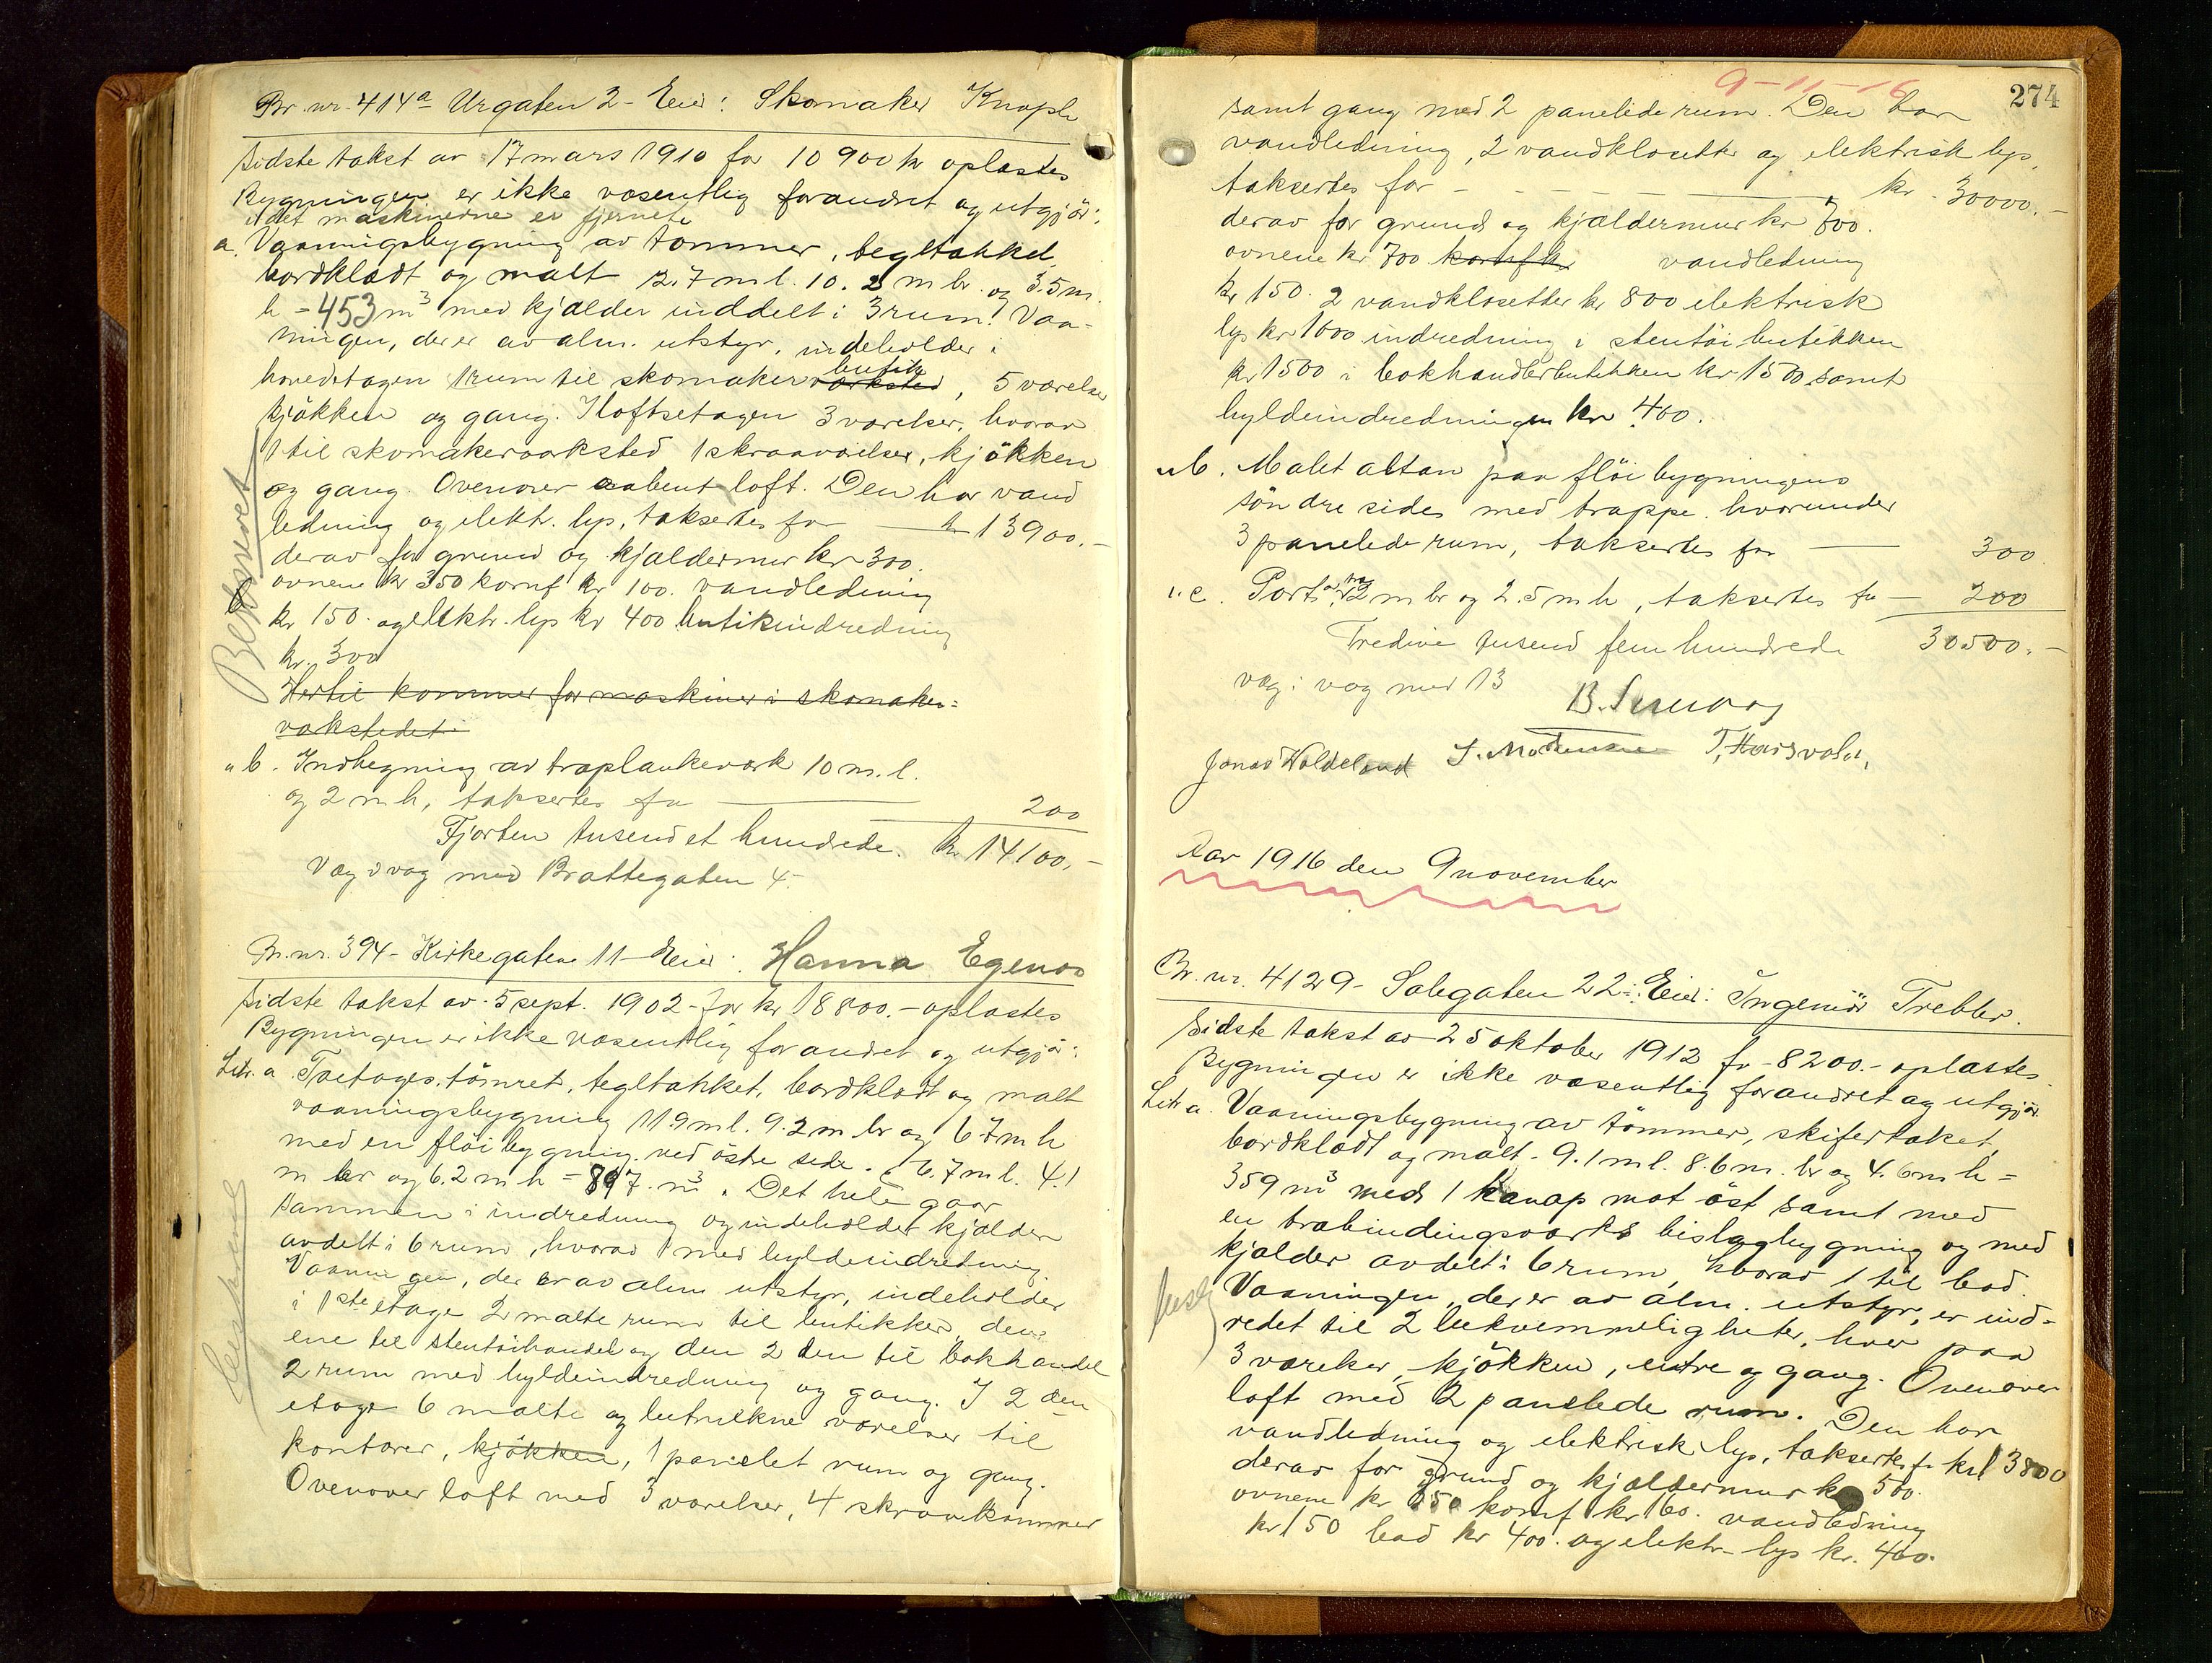 Br. nr. 414a Urgaten 2 - Eier: Skomaker Knoph
Sidste takst av 17 mars 1910 for 10 900 kr oplæstes
Bygningen er ikke væsentlig forandret og utgjør:
idet maskinerne er fjernete
a. Vaaningsbygning av tømmer, tegltækket
bordklædt og malt 12.7 m l. 10.2 m br. og 3.5 m.
h = 453 m3 med kjælder inddelt i 3 rum. Vaa-
ningen, der er av alm. utstyr, indeholder i
hovedetagen 1 rum til skomakerværksted butik, 5 værelser
kjøkken og gang. I loftsetagen 3 værelser, hvorav
1 til skomakerværksted 1 skraaværelse, kjøkken
og gang. Ovenover aabent loft. Den har vand
ledning og elektr. lys, takseres for kr 13900.-
derav for grund og kjældermur kr 300.
ovnene kr 350 komf kr 100. vandledning
kr 150. og elektr. lys kr 400 butikindredning
kr. 300
Hertil kommer for maskiner i skomaker=
værkstedet:
Bekbsvoret
" b. Indhegning av træplankeværk 10 m. l.
og 2 m h, takseres for 200
Fjorten tusend et hundrede. kr 14100.-
Væg i væg med Brattegaten 4.
Br. nr. 394 - Kirkegaten 11 - Eier: Hanna Egenæs
Sidste takst av 5 sept. 1902 - for kr 18800.- oplæstes
Bygningen er ikke væsentlig forandret og utgjør:
Litr. a Toetages, tømret, tegltækket, bordklædt og malt
vaaningsbygning 11.9 m l. 9.2 m br og 6.7 m h
med en fløibygning ved østre side. 6.7 m l. 4.1
m br og 6.2 m h = 897 m3. Det hele gaar
sammen i indredning og indeholder kjælder
avdelt i 6 rum, hvorav 1 med hyldeindredning.
Vaaningen, der er av alm utstyr, indeholder
i 1ste etage 2 malte rum til butikker, den
ene til stentøihandel og den 2den til bokhandel
2 rum med hyldeindredning og gang. I 2den
etage 6 malte og betrukne værelser til
kontorer, kjøkken, 1 panelet rum og gang.
Ovenover loft med 3 værelser, 4 skraakammer
9-11-16
274
samt gang med 2 panelede rum. Den har
vandledning, 2 vandklosetter og elektrisk lys,
takseres for - - - - - kr 30000.-
derav for grund og kjældermur kr 700.
ovnene kr 700 komf kr vandledning
kr 150. 2 vandklosetter kr 800 elektrisk
lys kr 1000 indredning i stentøibutikken
kr 1500 i bokhandlerbutikken kr 1500 samt
hyldeindredningen kr 400.
" b. Malet altan paa fløibygningens
søndre side med trappe. hvorunder
3 panelede rum, takseres for 300
" c. Port av træ 2 m br og 2.5 m h, takseres for 200
Tredive tusend fem hundrede 30500.-
væg i væg med 13
Jonas Woldeland
Aar 1916 den 9 november
Br. nr. 4129 - Solegaten 22: Eier: Ingeniør Trebler.
Sidste takst av 25 oktober 1912 for 8200.- oplæstes.
Bygningen er ikke væsentlig forandret og utgjør
Litr a. Vaaningsbygning av tømmer, skifertækket,
bordklædt og malt - 9.1 m l. 8.6 m. br og 4.6 m h =
359 m3 med 1 karnap mot øst samt med
en træbindingsverks bislagbygning og med
kjælder avdelt i 6 rum, hvorav 1 til bad.
Vaaningen, der er av alm. utstyr, er ind-
redet til 2 bekvemmeligheter, hver paa
3 værelser, kjøkken, entre og gang. Ovenover
loft med 2 panelede rum. Den har
vandledning og elektrisk lys, takseres for kr 13800
derav for grund og kjældermur kr 500.
ovnene kr 350 komf kr 160. vandledning
kr 150 bad kr 400. og elektr. lys kr. 400.